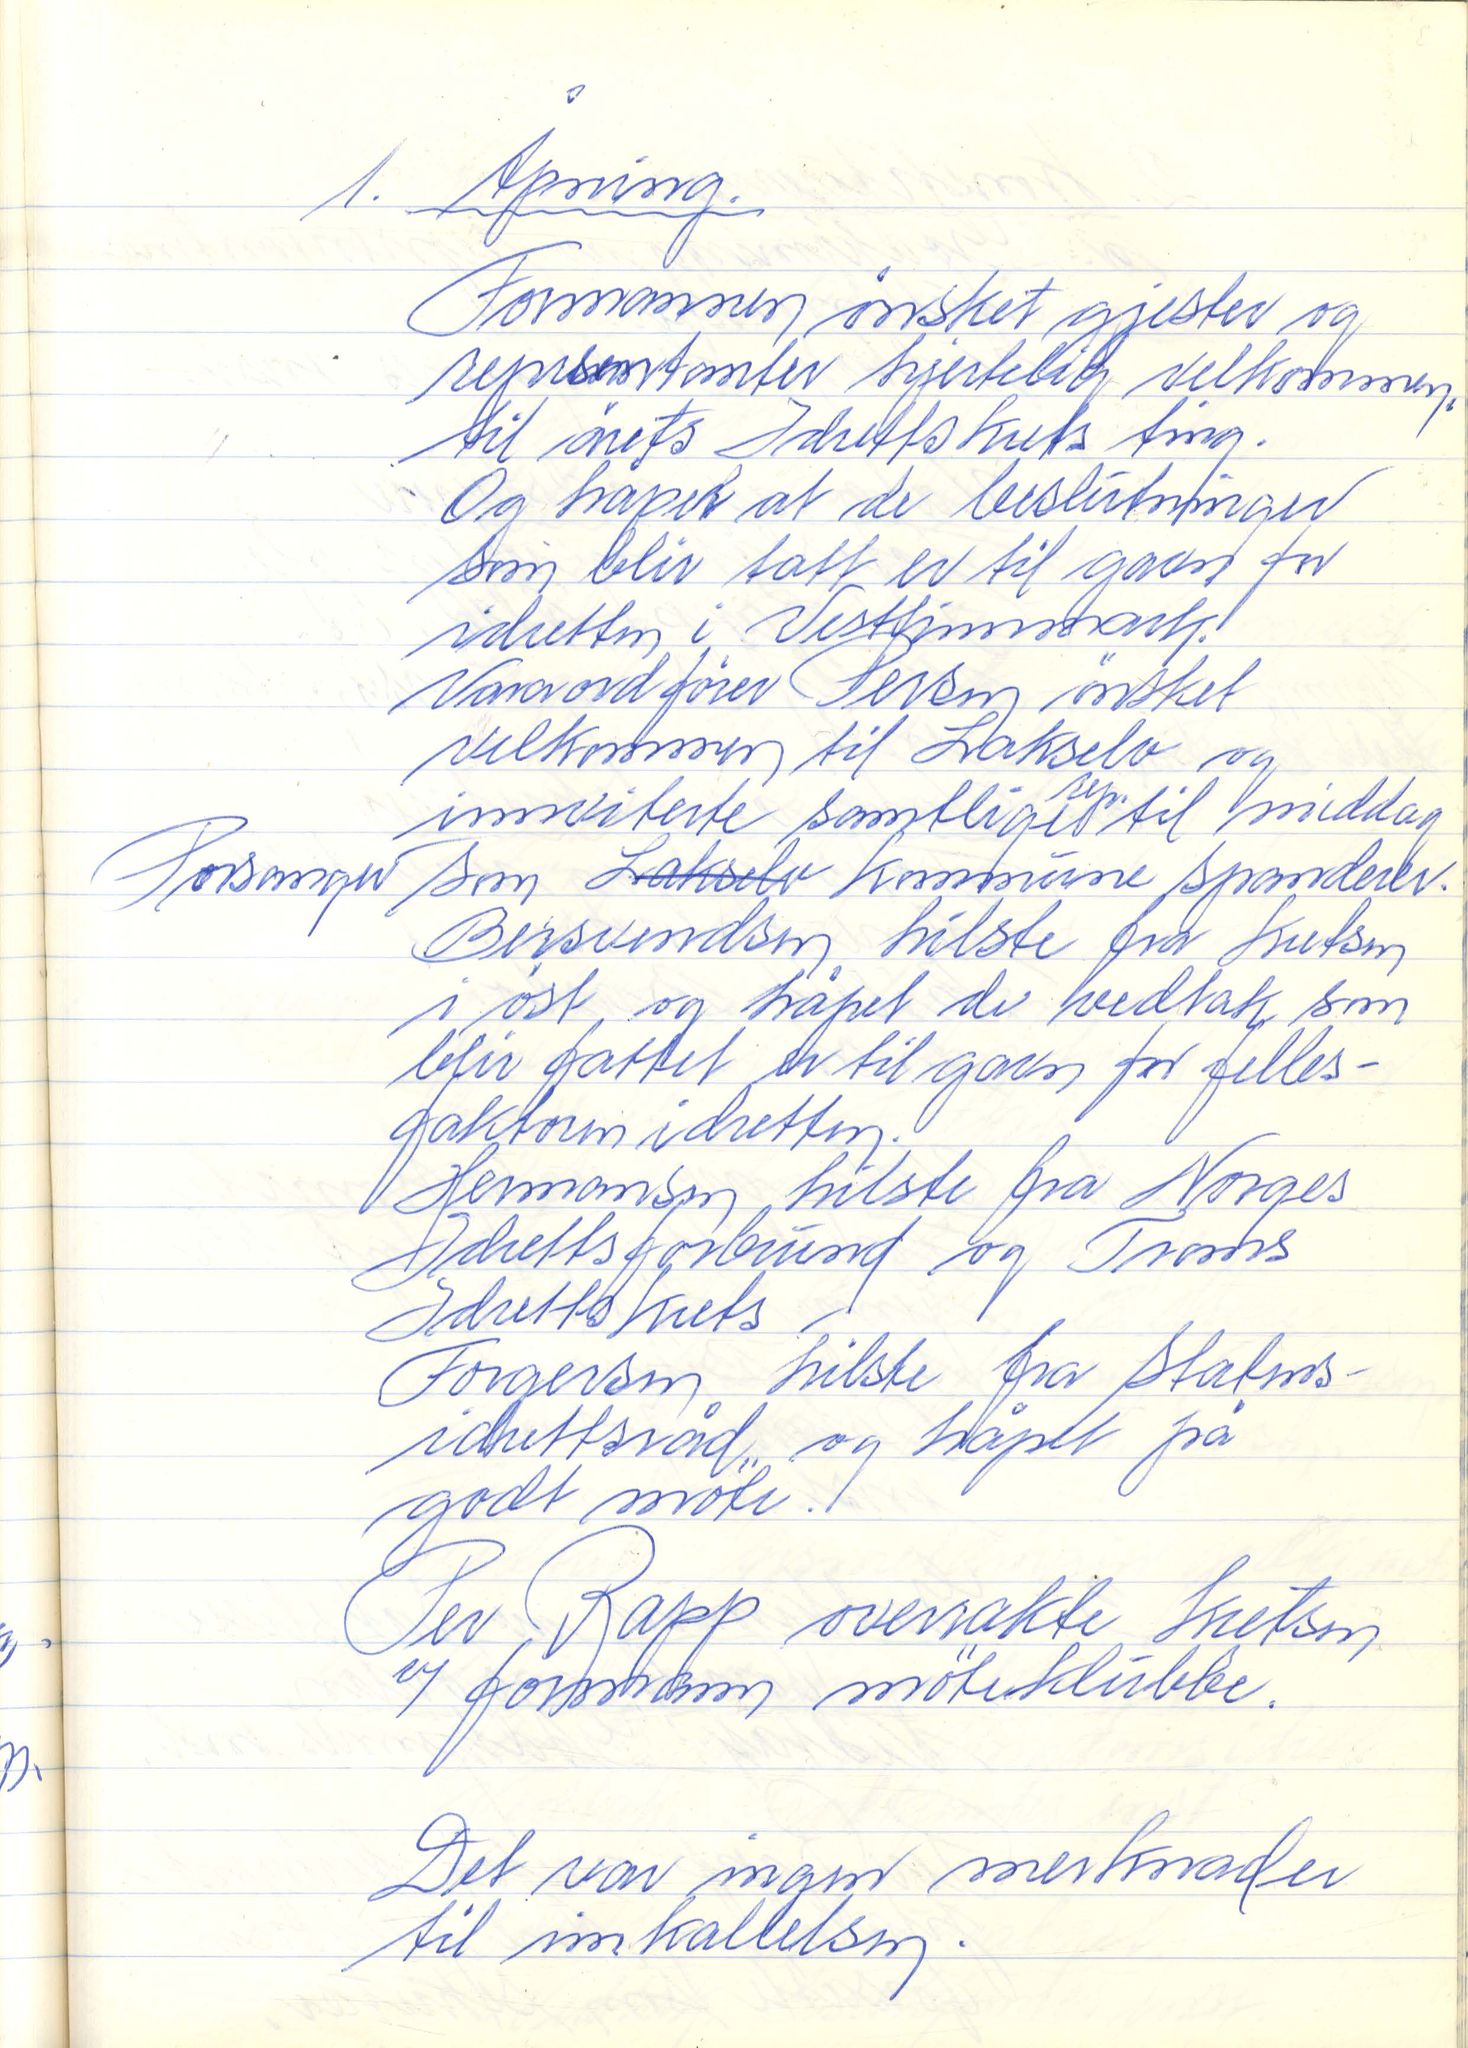 1. Åpning.
Formannen önsket gjester og
representanter hjertelig velkommen.
til årets Idrettskrets ting.
Og håper at de beslutninger
som blir tatt er til gavn for
idretten i Vestfinnmark.
Varaordfører Persen önsket
velkommen til Lakselv og
innviterte samtlige rep. til middag
Porsanger som Lakselv kommune spanderer.
Bersvendsen hilste fra kretsen
i öst, og håpet de vedtak som
blir fattet er til gavn for felles-
faktoren idretten.
Hermansen hilste fra Norges
Idrettsforbund og Troms
Idrettskrets
Torgersen hilste fra Statens-
idrettsråd, og håpet på
godt möte.
Per Rapp overrakte kretsen
v/ formann möteklubbe.
Det var ingen merknader
til innkallelsen.